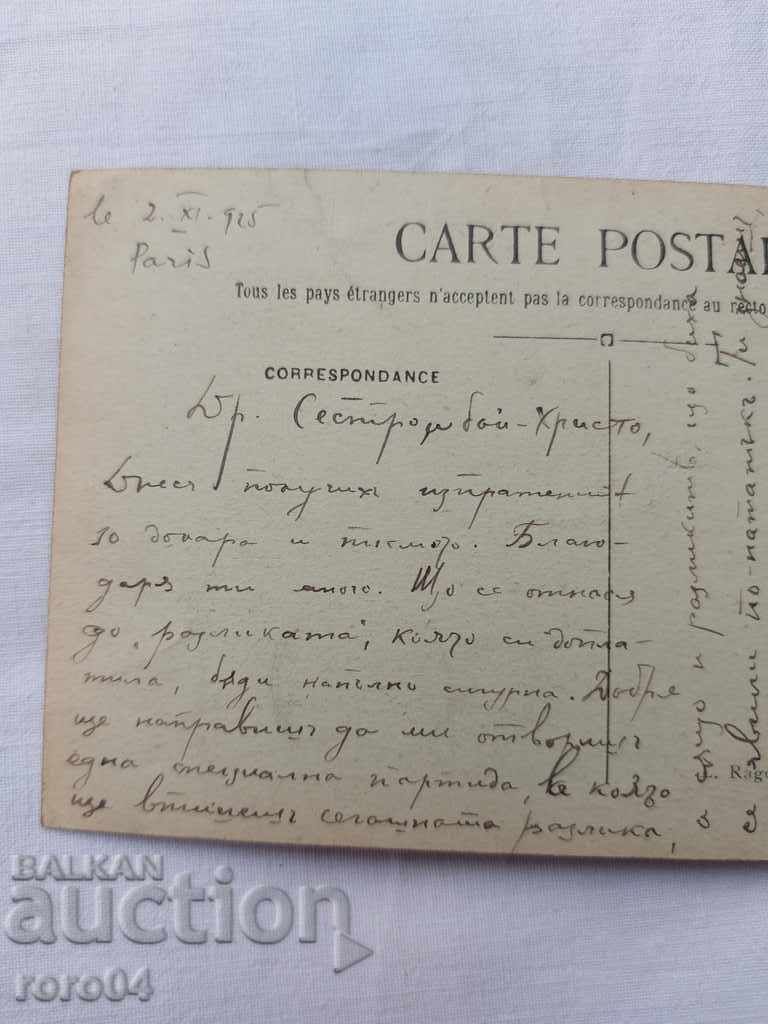 le 2. XI. 925
Paris
CARTE POSTAL
Tous les pays étrangers n'acceptent pas la correspondance au recto
CORRESPONDANCE
Др. Сестро и бай-Христо,
Днесъ получихъ изпратенитѣ
10 долара и писмото. Благо-
даря ти много. Що се отнася
до „разликата", която си допла-
тила, бѫди напълно сигурна. Добрѣ
ще направишъ да ми отворишъ
една специална партида, въ която
ще впишешъ сегашната разлика,
а сѫщо и разликитѣ, що биха
се явили по-нататъкъ. Ти
Rag
BALKAN
auction
roro04